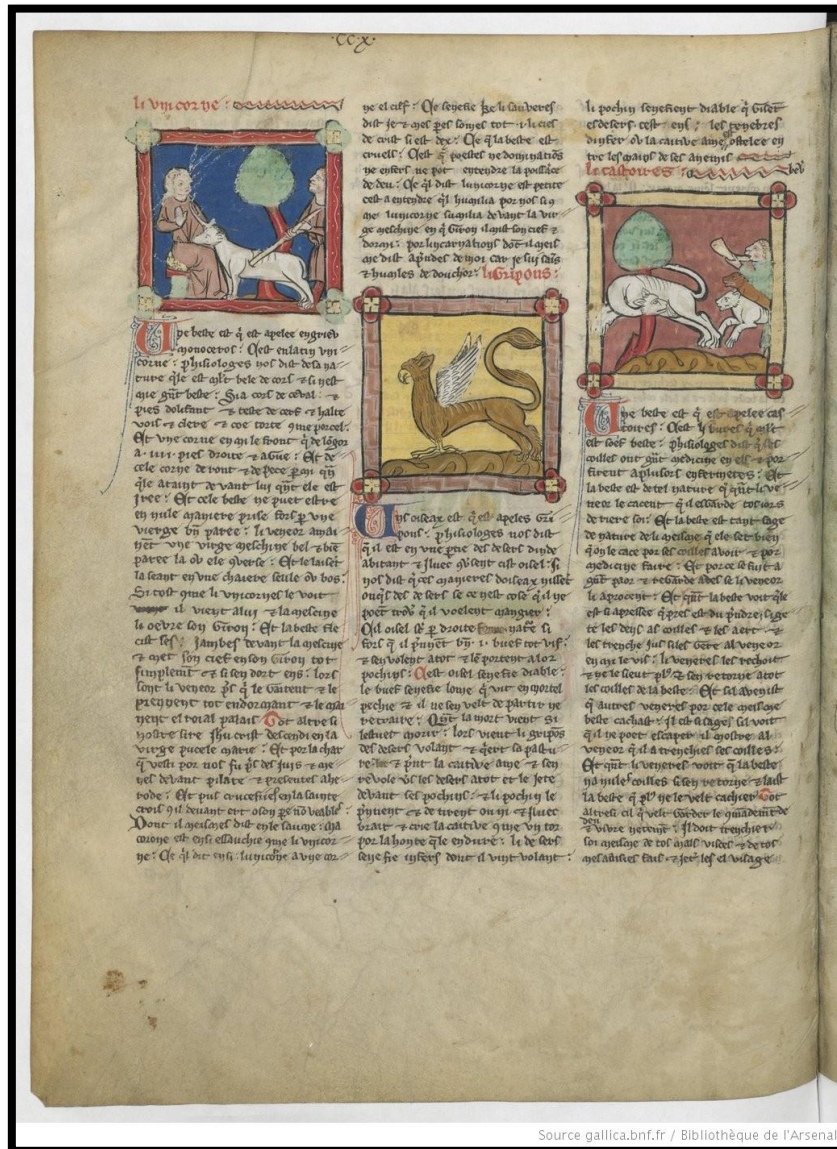 CC.X.
li vnicorne :
Vne beste est q̄ est apelee en griev
monoceros : Cest en latin vni
corne : phisiologes nos dist de sa na
ture q̄le est ml't bele de cors & si nest
mie gn̄t beste : Si a cors de ceval : &
pies dolifant & teste de cerf & halte
vois & clere & coe torte 9me porcel :
Et vne corne en mi le front q̄ de lōgor
a .iiii. pies droite & ague : Et de
cele corne deront & depece
q̄le ataint devant lui qn̄t ele est
iree : Et cele beste ne puet estre
en nule maniere prise fors p vne
vierge bn̄ paree : li veneor amai
nēt vne virge meschine bel & biē
paree la ov ele 9verse : Et le lait
la seant en vne chaiere seule ov bos :
Si tost que li vnicornes le voit
il vient a lui & la mescine
li oevre son giron : Et la beste fle
cist ses jambes devant la mescine
& met son cief en son giron tot
simplemēt & si sen dort ens : lors
sont li veneor p̄s q̄ le gaitent & le
prendent tot endormant & le mai
nent el roial palais Tot altresi
nostre sire Jhu crist descendi en la
virge pucele marie : Et por la char
q̄ vesti por nos fu p̄s des juis & me
nes devant pilate & presentes a he
rode : Et puis crucefies en la sainte
crois
Dont il meismes dist en le saume : Ma
corone est ensi essauchie 9me li vnicor
ne : Ce q̄l dit ensi : lunicorne a vne cor
ne el cief : Ce senefie ke li sauveres
dist je & mes pes somes tot .i. li cies
de crist si est dex : Ce q̄ la beste est
cruels : Cest q̄ poestes ne dominatiōs
ne enfers ne pot entendre la poissāce
de deu : Ce q̄l dist lunicorne est petite
cest a entendre q̄l humilia por nos si 9
me lunicorne sumilia devant la vir
ge meschine en q̄ giron il mist son cief &
dormi : por lincarnatiōns dōt il meis
me dist apndes de moi car je sui suēs
& humles de douchor : li Gripons :
Vns oiseax est q̄ est apeles Gri
pons : phisiologes nos dist
q̄ il est en vne ptie des desers dinde
abitant & iluec 9versent cist oisel : Si
nos dist q̄ ces manieres doiseax nisset
onq̄s des desers se ce nest cose q̄ il ne
poet trover q̄ il voelent mangier :
Cil oisel st̄ p droite nat̄re si
fors q̄ il pn̄nent bn̄ .i. buef tot vif :
& sen volent atot & le portent a lor
pochins : Cest oisel senefie diable :
le buef senefie lome q̄ vit en mortel
pechie & il ne sen velt departir ne
retraire : Qn̄t la mort vient si
lestuet morir : lors vient li gripōs
des desers volant & qert sa pastu
re & pn̄t la caitive ame & sen
revole vs les desers atot & le jete
devant ses pochins : & li pochin le
pn̄nent & detirent & iluec
brait & crie la caitive 9me vn tor
por la honte q̄le endure : li desers
senefie infers dont il vint volant :
li pochin senefient diable q̄ gisēt
es desers cest ens les tenebres
dinfer ov la caitive ame ostelee en
tre les mains de ses anemis
li castoires :
Vne beste est q̄ est apelee cas
toires : Cest li bivres q̄ ml't
est soes beste : phisiologes dist q̄ ses
coilles ont gn̄t medicine en els & por
firent a plusors enfermetes : Et
la beste est de tel nature q̄ qn̄t li ve
neor le cacent q̄ il esgarde tos jors
deriere soi : Et la beste est tant sage
de nature de li meisme q̄ ele set bien
q̄ on le cace por ses coilles avoir & por
medicine faire : Et por ce se fuit a
gn̄t paor & regarde ades se li veneor
li aprocent : Et qn̄t la beste voit q̄le
est si apressee q̄ pres est du pndre si ge
te les dens as coilles & les aert &
les trenche jus si les gete al veneor
en mi le vis : li veneres les rechoit
& ne le sieut pl' & sen retorne atot
les coilles de la beste : Et sil avenist
q̄ autres veneres por cele meisme
beste cachast : Il est si sages sil voit
q̄ il ne poet escaper il mostre al
veneor q̄ il a trenchies ses coilles :
Et qn̄t li veneres voit q̄ la beste
na nule coilles si sen retorne & laist
la beste q̄ pl' ne le velt cachier Tot
altresi cil q̄ velt garder le 9mādemēt de
deu
& vivre netemt : Il doit trenchier
soi meisme de tos mals visces & de tos
mesaaisies fais & jeter les el visage
Source gallica.bnf.fr / Bibliothèque de l'Arsenal